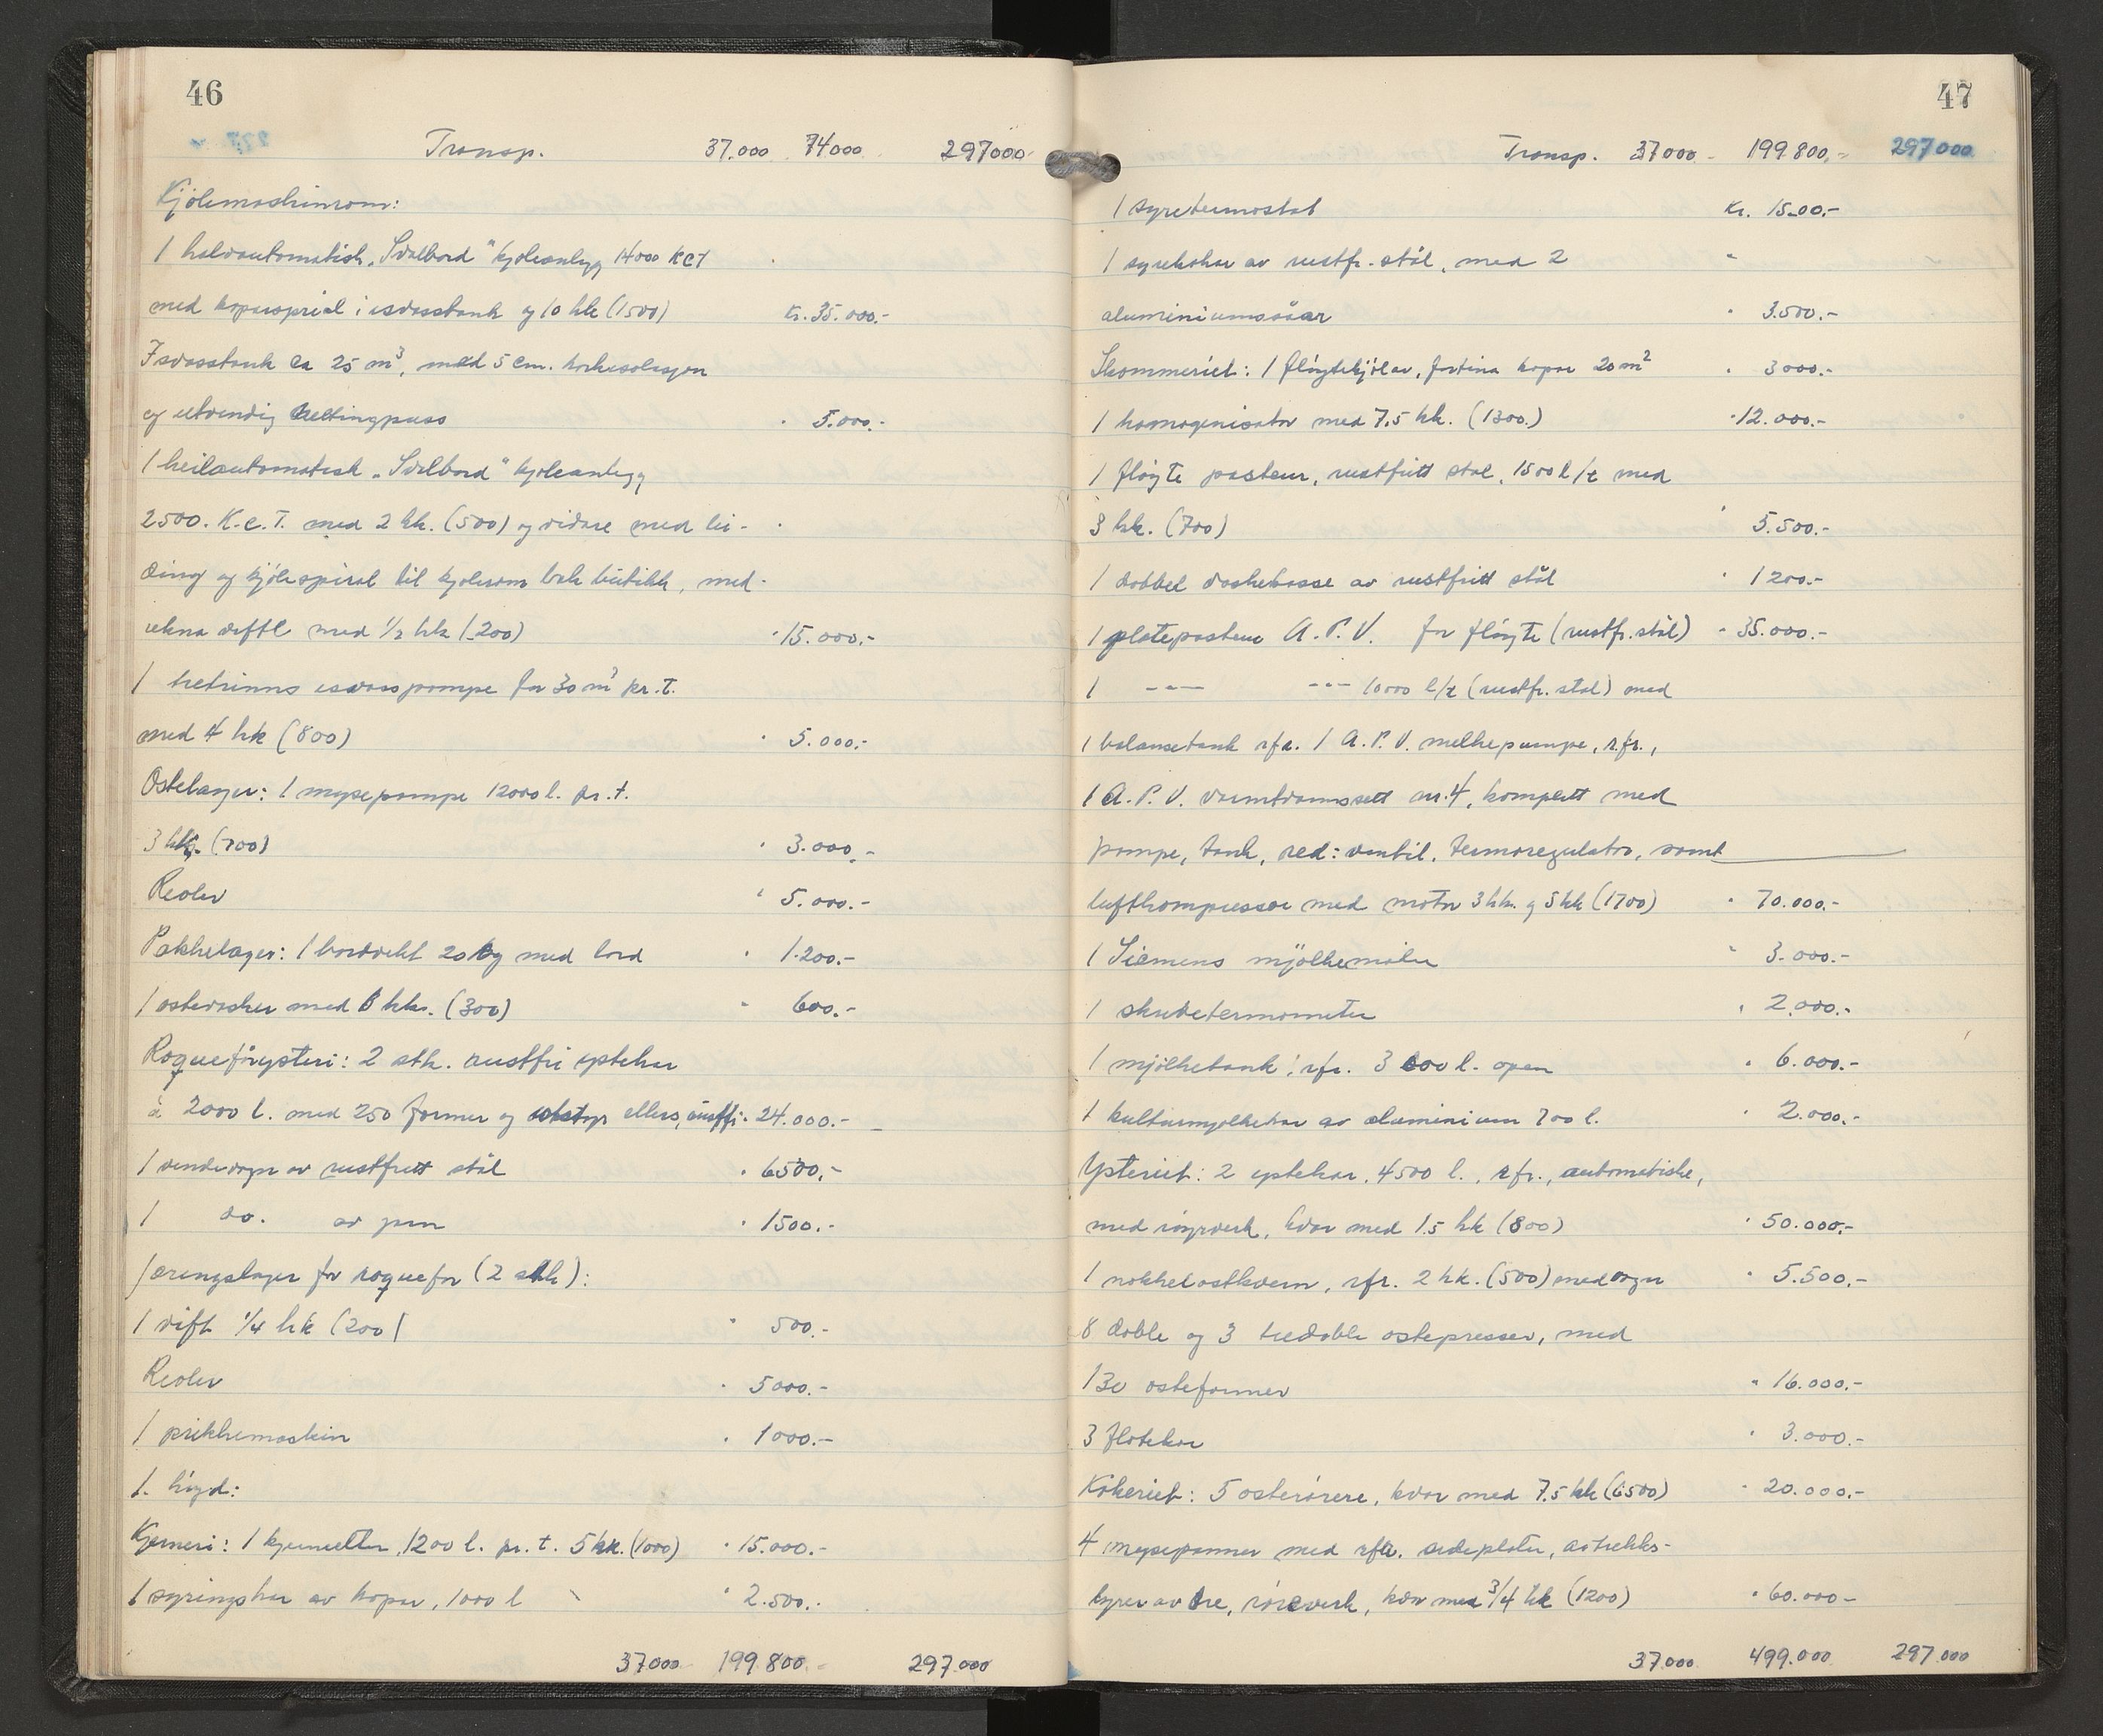 46
Transp. 37.000 74000 297000
Kjölemaskinrom:
1 halvautomatisk „Svalbard" kjøleanlegg 14000 KCT
med koparspiral i isvasstank og 10 hk (1500) Kr. 35.000.-
Isvasstank ca 25 m³, med 5 cm. korkisolasjon
og utvendig nettingpuss " 5.000.-
1 heilautomatisk „Svalbard" kjøleanlegg
2500. K.c.T. med 2 hk. (500) og vidare med lei-
ding og kjølespiral til kjølerom bak butikk, med-
rekna vifte med 1/2 hk (200) " 15.000.-
1 totrinns isvasspumpe for 30 m³ pr. t.
med 4 hk (800) " 5.000.-
Ostelager: 1 mysepumpe 12000 l. pr. t.
3 hk. (700) " 3.000.-
Reoler " 5.000.-
Pakkelager: 1 bordvekt 20 kg med bord " 1.200.-
1 ostevasker med hk. (300) " 600.-
Roquefórysteri: 2 stk. rustfri ystekar
à 2000 l. med 250 former og utstyr ellers, rustfri " 24.000.-
1 vendevogn av rustfritt stål " 6500.-
1 do. av jern " 1500.-
Jæringslager for roquefor (2 stk):
1 vift 1/4 hk (200) " 500.-
Reoler " 5000.-
1 prikkemaskin " 1000.-
1. høgd:
Kjerneri: 1 kjerneelter 1200 l. pr. t. 5 hk. (1000) " 15.000.-
1 syringskar av kopar, 1000 l " 2.500.-
37000 199.800.- 297.000
47
Transp. 37000 199.800.- 297000
1 syretermostat Kr. 1500.-
1 syrekokar av rustfr. stål, med 2 "
aluminiumsåar " 3.500.-
Skommeriet: 1 fløytekjølar, fortina kopar 20 m² " 3000.-
1 homogenisator med 7,5 hk. (1300.) " 12.000.-
1 fløyte pasteur, rustfritt stål, 1500 l/t med
3 hk. (700) " 5.500.-
1 dobbel vaskebasse av rustfritt stål " 1200.-
1 platepasteur A.P.V. for fløyte (rustfr. stål) " 35.000.-
1 --- --- 10000 l/t (rustfr. stål) med
1 balansetank rfr. 1 A.P.V. melkepumpe, rfr.,
1 A.P.V. varmtvannssett nr. 4, komplett med
pumpe, tank, red: ventil, termoregulator, samt
luftkompressor med motor 3 hk. og 5 hk (1700) " 70.000.-
1 Siemens mjölkemåler " 3.000.-
1 skrivetermometer " 2.000.-
1 mjölketank, rfr. 3000 l. open " 6.000.-
1 kulturmjølkekar av aluminium 700 l. " 2.000.-
Ysteriet: 2 ystekar, 4500 l., rfr., automatiske,
med røyrverk, kvar med 1.5 hk (800) " 50.000.-
1 nøkkelostkvern, rfr. 2 hk. (500) med vogn " 5.500.-
8 doble og 3 tredoble ostepresser, med
130 osteformer " 16.000.-
3 flotekar " 3.000.-
Kokeriet: 5 osterørere, kvar med 7.5 hk (6500) " 20.000.-
4 mysepanner med rfr. sideplater, avtrekks-
hyrer av tre, rørverk, kvar med 3/4 hk (1200) " 60.000-
37.000 499.000 297.000